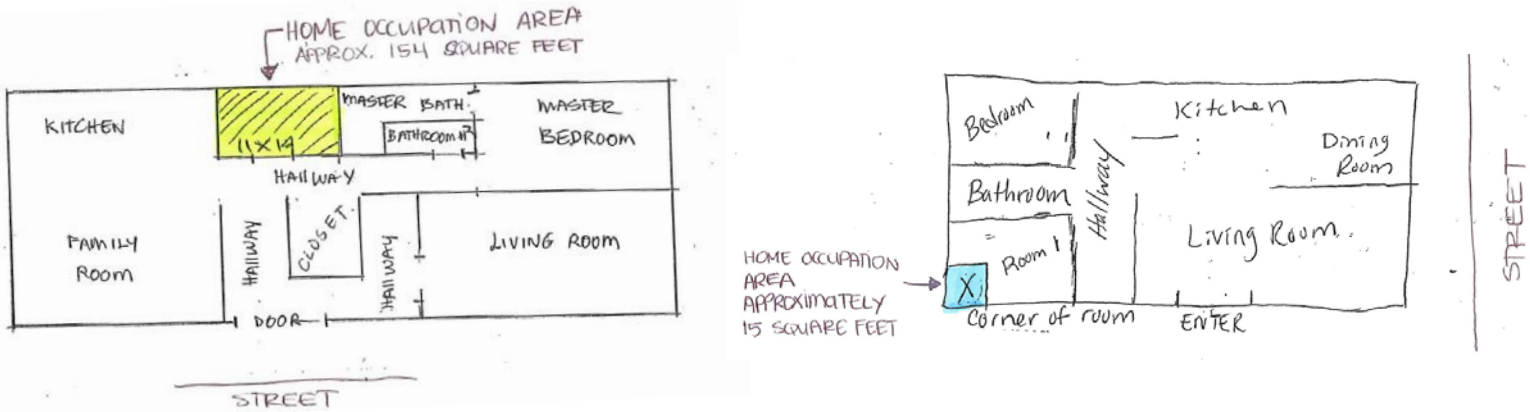 HOME OCCUPATION AREA
APPROX. 154 SQUARE FEET
KITCHEN
11 X 14
MASTER BATH
BATHROOM
MASTER
BEDROOM
HALLWAY
FAMILY
ROOM
HALLWAY
CLOSET
HALLWAY
LIVING ROOM
DOOR
STREET
Bedroom
Kitchen
Dining
Room
Bathroom
Hallway
Room 1
Living Room
HOME OCCUPATION
AREA
APPROXIMATELY
15 SQUARE FEET
X
Corner of room
ENTER
STREET